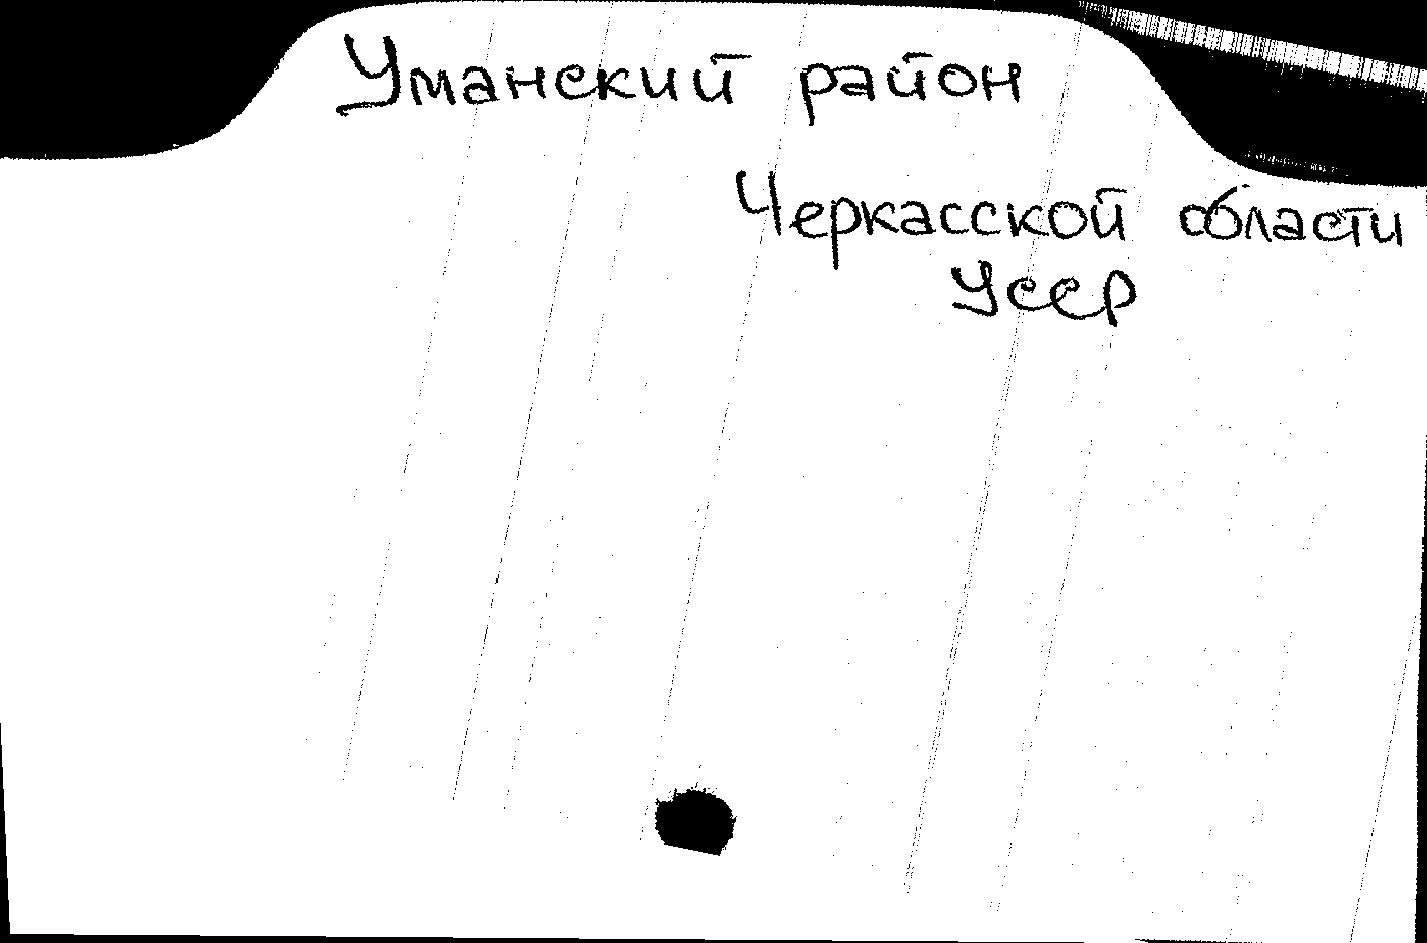 Уманский район
Черкасской области
УССР